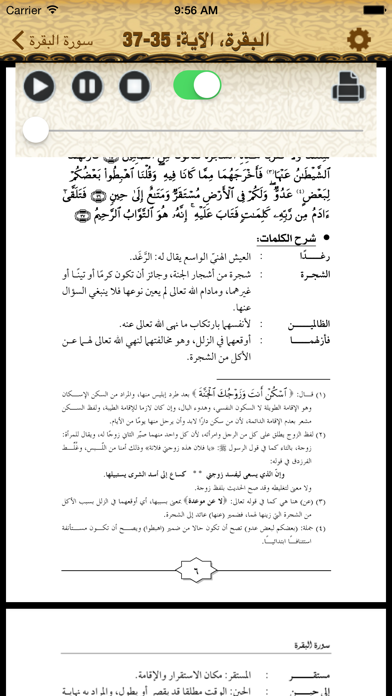 Carrier 9:56 AM
سورة البقرة
البقرة، الآية: 35-37
الشَّيْطَٰنُ عَنْهَا (٣) فَأَخْرَجَهُمَا مِمَّا كَانَا فِيهِ ۖ وَقُلْنَا اهْبِطُوا بَعْضُكُمْ
لِبَعْضٍ (٤) عَدُوٌّ ۖ وَلَكُمْ فِي الْأَرْضِ مُسْتَقَرٌّ وَمَتَٰعٌ إِلَىٰ حِينٍ ﴿٣٦﴾ فَتَلَقَّىٰٓ
ءَادَمُ مِن رَّبِّهِۦ كَلِمَٰتٍ فَتَابَ عَلَيْهِ ۚ إِنَّهُۥ هُوَ التَّوَّابُ الرَّحِيمُ ﴿٣٧﴾
● شرح الكلمات:
رغــدًا : العيش الهنيّ الواسع يقال له: الرَّغَد.
الشجرة : شجرة من أشجار الجنة، وجائز أن تكون كرمًا أو تينًا أو
غيرهما، ومادام الله تعالى لم يعين نوعها فلا ينبغي السؤال
عنها.
الظالميـــن : لأنفسهما بارتكاب ما نهى الله تعالى عنه.
فأزلهمـا : أوقعهما في الزلل، وهو مخالفتهما لنهي الله تعالى لهما عن
الأكل من الشجرة.
(١) قال: ﴿ اسْكُنْ أَنتَ وَزَوْجُكَ الْجَنَّةَ ﴾ بعد طرد إبليس منها، والمراد من السكن الإسكان
وهو الإقامة الطويلة لا السكون النفسي، وهدوء البال، وإن كان لازما للإقامة الطيبة، ولفظ السكن
مشعر بعدم الإقامة الدائمة، لأن من سكن دارًا لابد وأن يرحل منها يومًا من الأيام.
(٢) لفظ الزوج يطلق على كل من الرجل وامرأته، لأن كل واحد منهما صيّر الثاني زوجًا له، ويقال للمرأة:
زوجة، بالتاء كما في قول الرسول ﷺ: «يا فلان هذه زوجتي فلانة» وذلك أمنا من اللَّبس، وغُلِّط
الفرزدق في قوله:
وإنّ الذي يسعى ليفسد زوجتي ** كساع إلى أسد الشرى يستبيلها.
ولا معنى لتغليطه وقد صح الحديث بلفظ زوجة.
(٣) (عن) هنا هي كما في قوله تعالى: ﴿إلا عن موعدة﴾ بمعنى بسببها، أي أوقعهما في الزلل بسبب الأكل
من الشجرة التي زينها لهما، فضمير (عنها) عائد إلى الشجرة.
(٤) جملة: (بعضكم لبعض عدو) تصح أن تكون حالا من ضمير (اهبطوا) ويصح أن تكون مستأنفة
استئنافًا ابتدائيًا.
٦
سورة البقرة
مستقــر : المستقر: مكان الاستقرار والإقامة.
إلى حيــن : الحين: الوقت مطلقا قد يقصر أو يطول، والمراد به نهاية